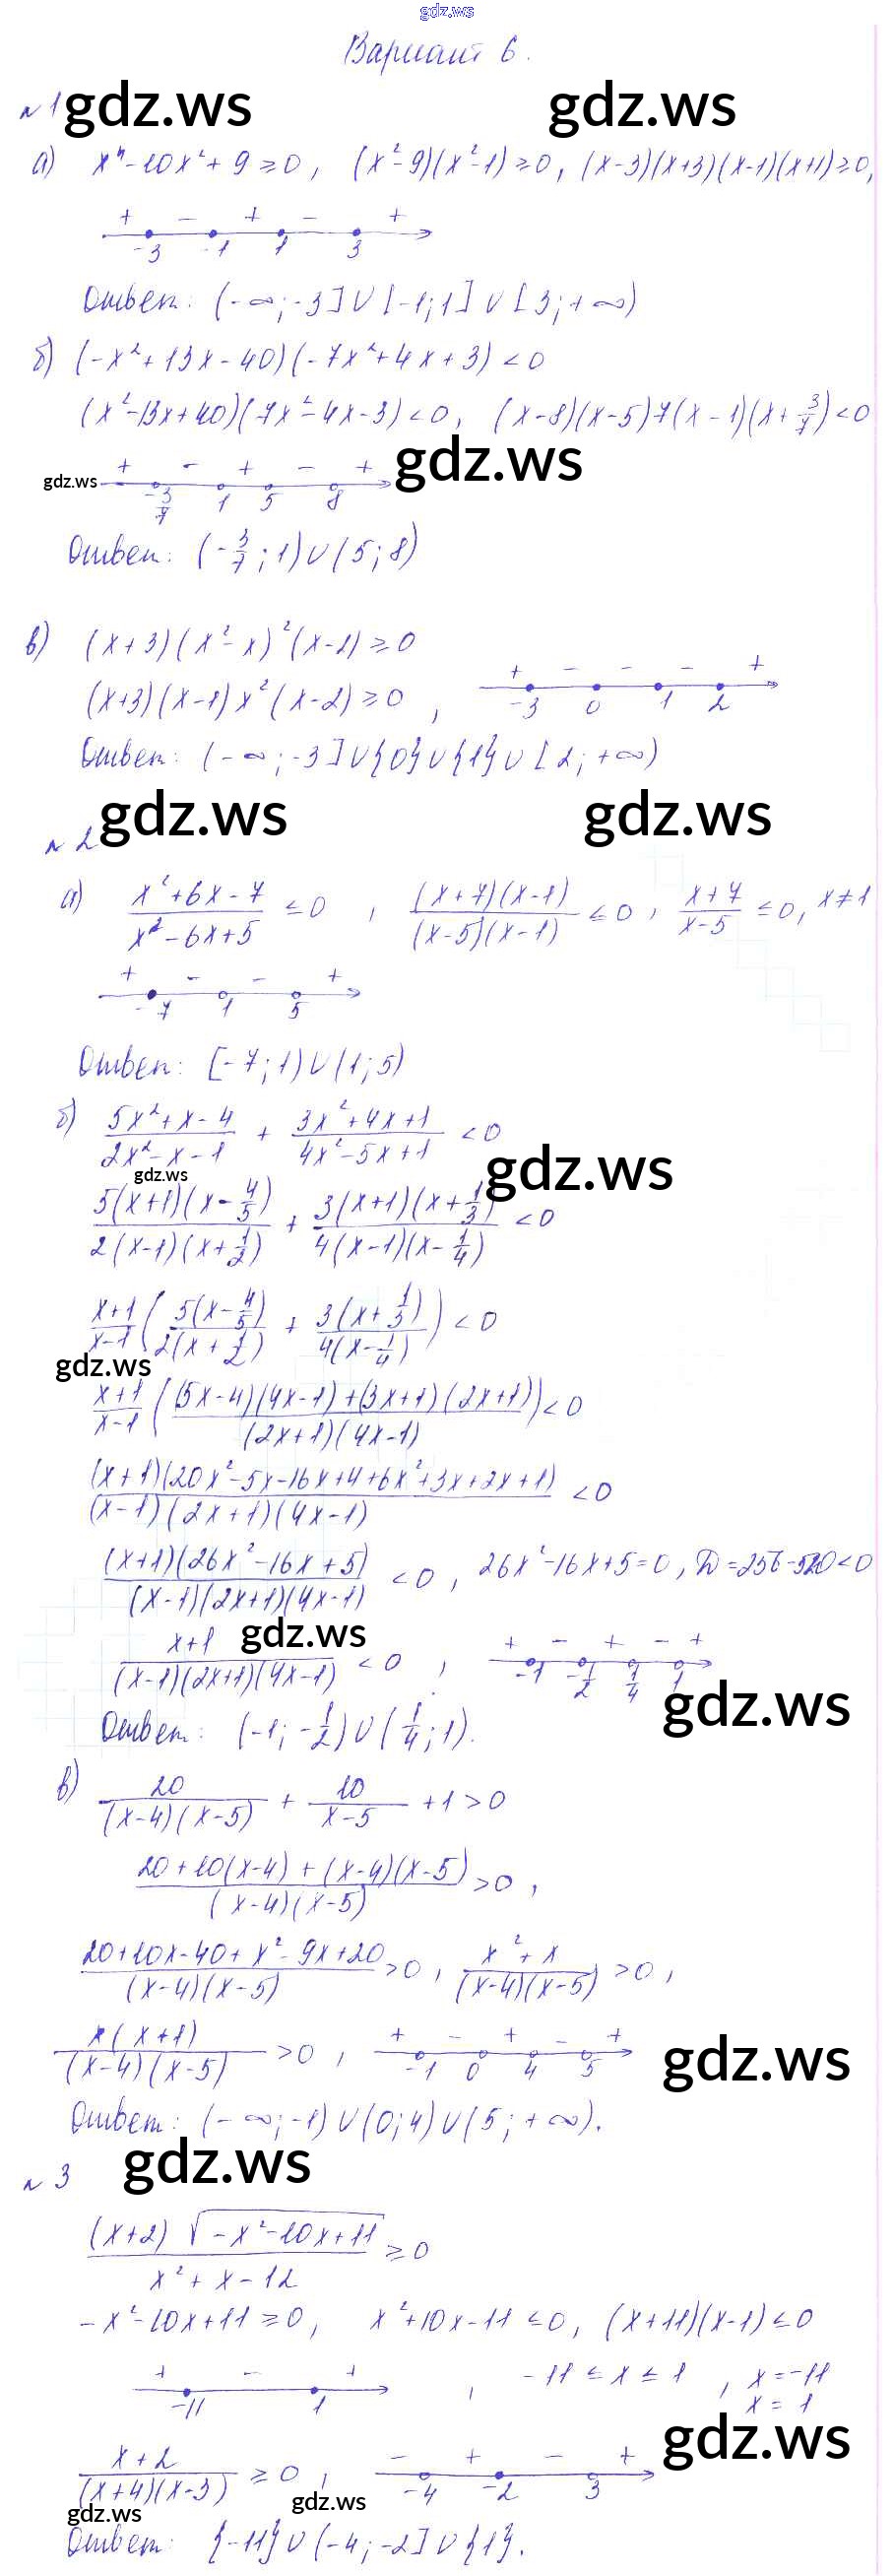 gdz.ws
Вариант 6.
№1 gdz.ws gdz.ws
а) x⁴ - 10x² + 9 ≥ 0, (x² - 9)(x² - 1) ≥ 0, (x-3)(x+3)(x-1)(x+1) ≥ 0,
+ − + − +
-3 -1 1 3
Ответ: (-∞; -3] ∪ [-1; 1] ∪ [3; +∞)
б) (-x² + 13x - 40)(-7x² + 4x + 3) < 0
(x² - 13x + 40)(7x² - 4x - 3) < 0, (x-8)(x-5)7(x-1)(x + 3/7) < 0
+ − + − + gdz.ws
gdz.ws -3/7 1 5 8
Ответ: (-3/7; 1) ∪ (5; 8)
в) (x+3)(x² - x)²(x-2) ≥ 0
(x+3)(x-1)x²(x-2) ≥ 0, + − − − +
-3 0 1 2
Ответ: (-∞; -3] ∪ {0} ∪ {1} ∪ [2; +∞)
№2 gdz.ws gdz.ws
а) (x² + 6x - 7)/(x² - 6x + 5) ≤ 0, ((x+7)(x-1))/((x-5)(x-1)) ≤ 0, (x+7)/(x-5) ≤ 0, x ≠ 1
+ − − +
-7 1 5
Ответ: [-7; 1) ∪ (1; 5)
б) (5x² + x - 4)/(2x² - x - 1) + (3x² + 4x + 1)/(4x² - 5x + 1) < 0
gdz.ws gdz.ws
(5(x+1)(x - 4/5))/(2(x-1)(x + 1/2)) + (3(x+1)(x + 1/3))/(4(x-1)(x - 1/4)) < 0
(x+1)/(x-1) ((5(x - 4/5))/(2(x + 1/2)) + (3(x + 1/3))/(4(x - 1/4))) < 0
gdz.ws
(x+1)/(x-1) (((5x-4)(4x-1) + (3x+1)(2x+1))/((2x+1)(4x-1))) < 0
((x+1)(20x² - 5x - 16x + 4 + 6x² + 3x + 2x + 1))/((x-1)(2x+1)(4x-1)) < 0
((x+1)(26x² - 16x + 5))/((x-1)(2x+1)(4x-1)) < 0, 26x² - 16x + 5 = 0, D = 256 - 520 < 0
gdz.ws
(x+1)/((x-1)(2x+1)(4x-1)) < 0, + − + − +
-1 -1/2 1/4 1
gdz.ws
Ответ: (-1; -1/2) ∪ (1/4; 1).
в) 20/((x-4)(x-5)) + 10/(x-5) + 1 > 0
(20 + 10(x-4) + (x-4)(x-5))/((x-4)(x-5)) > 0,
(20 + 10x - 40 + x² - 9x + 20)/((x-4)(x-5)) > 0, (x² + x)/((x-4)(x-5)) > 0,
(x(x+1))/((x-4)(x-5)) > 0, + − + − +
-1 0 4 5
gdz.ws
Ответ: (-∞; -1) ∪ (0; 4) ∪ (5; +∞).
№3 gdz.ws
((x+2)√(-x² - 10x + 11))/(x² + x - 12) ≥ 0
-x² - 10x + 11 ≥ 0, x² + 10x - 11 ≤ 0, (x+11)(x-1) ≤ 0
+ − + , -11 ≤ x ≤ 1, x = -11
-11 1 x = 1
gdz.ws
(x+2)/((x+4)(x-3)) ≥ 0, − + − +
-4 -2 3
gdz.ws gdz.ws
Ответ: {-11} ∪ (-4; -2] ∪ {1}.